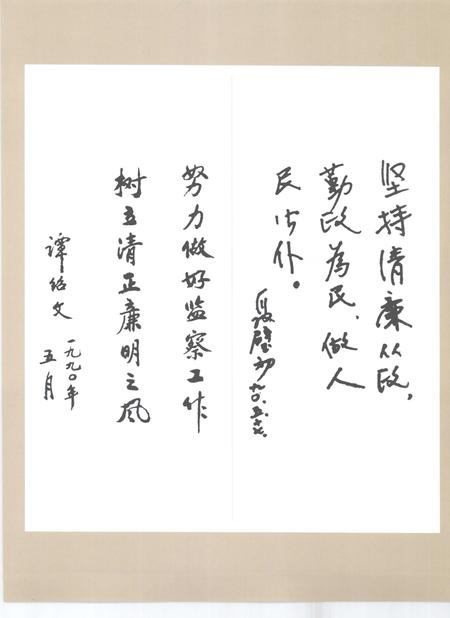 坚持清廉从政,
勤政为民,做人
民公仆。
努力做好监察工作
树立清正廉明之风
谭绍文
一九九〇年
五月